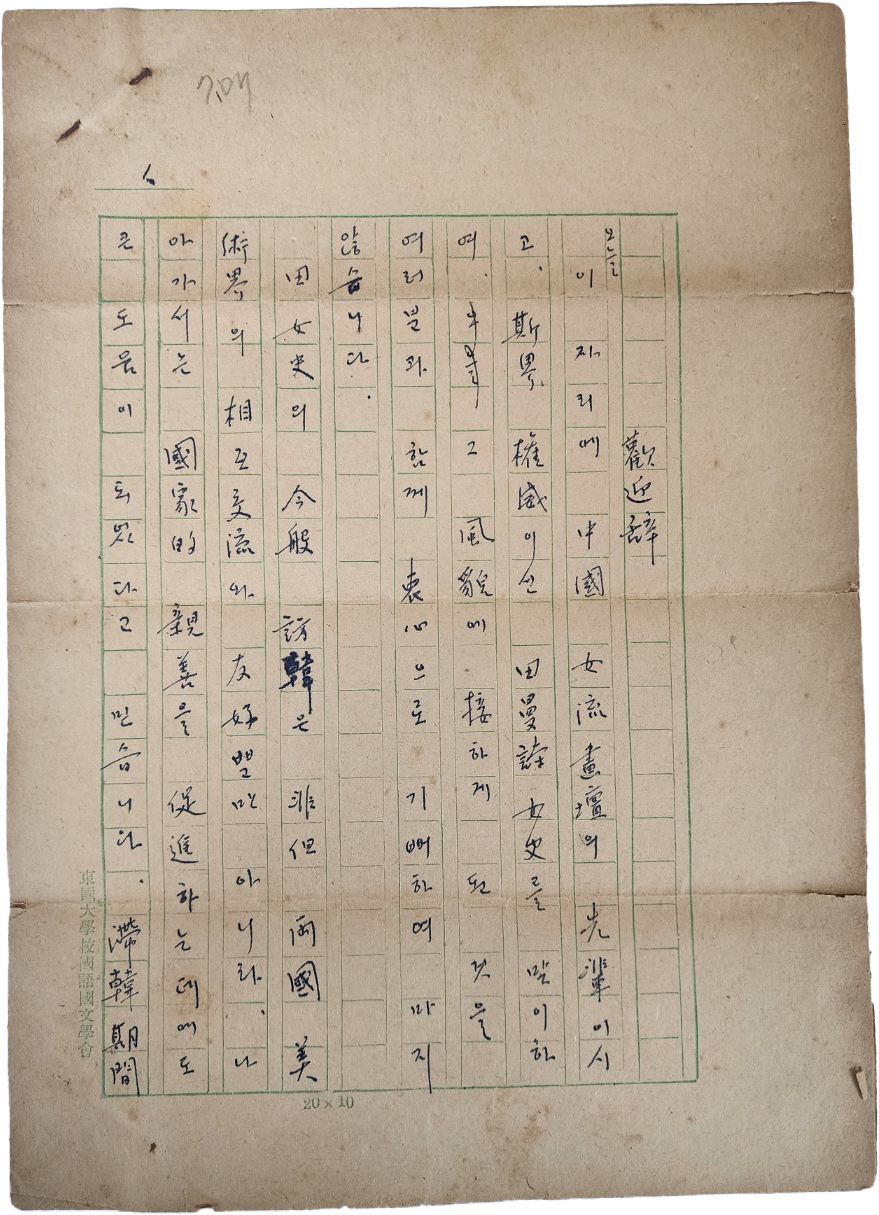 歡迎辭
오늘 이 자리에 中國 女流畫壇의 先輩이시
고, 斯界 權威이신 田曼詩 女史를 맞이하
여, 그 風貌에 接하게 된 것을
여러분과 함께 衷心으로 기뻐하여 마지
않습니다.
田女史의 今般 訪韓은 非但 兩國 美
術界의 相互交流와 友好뿐만 아니라, 나
아가서는 國家的 親善을 促進하는데에도
큰 도움이 되었다고 믿습니다. 滯韓期間
20×10
東國大學校國語國文學會